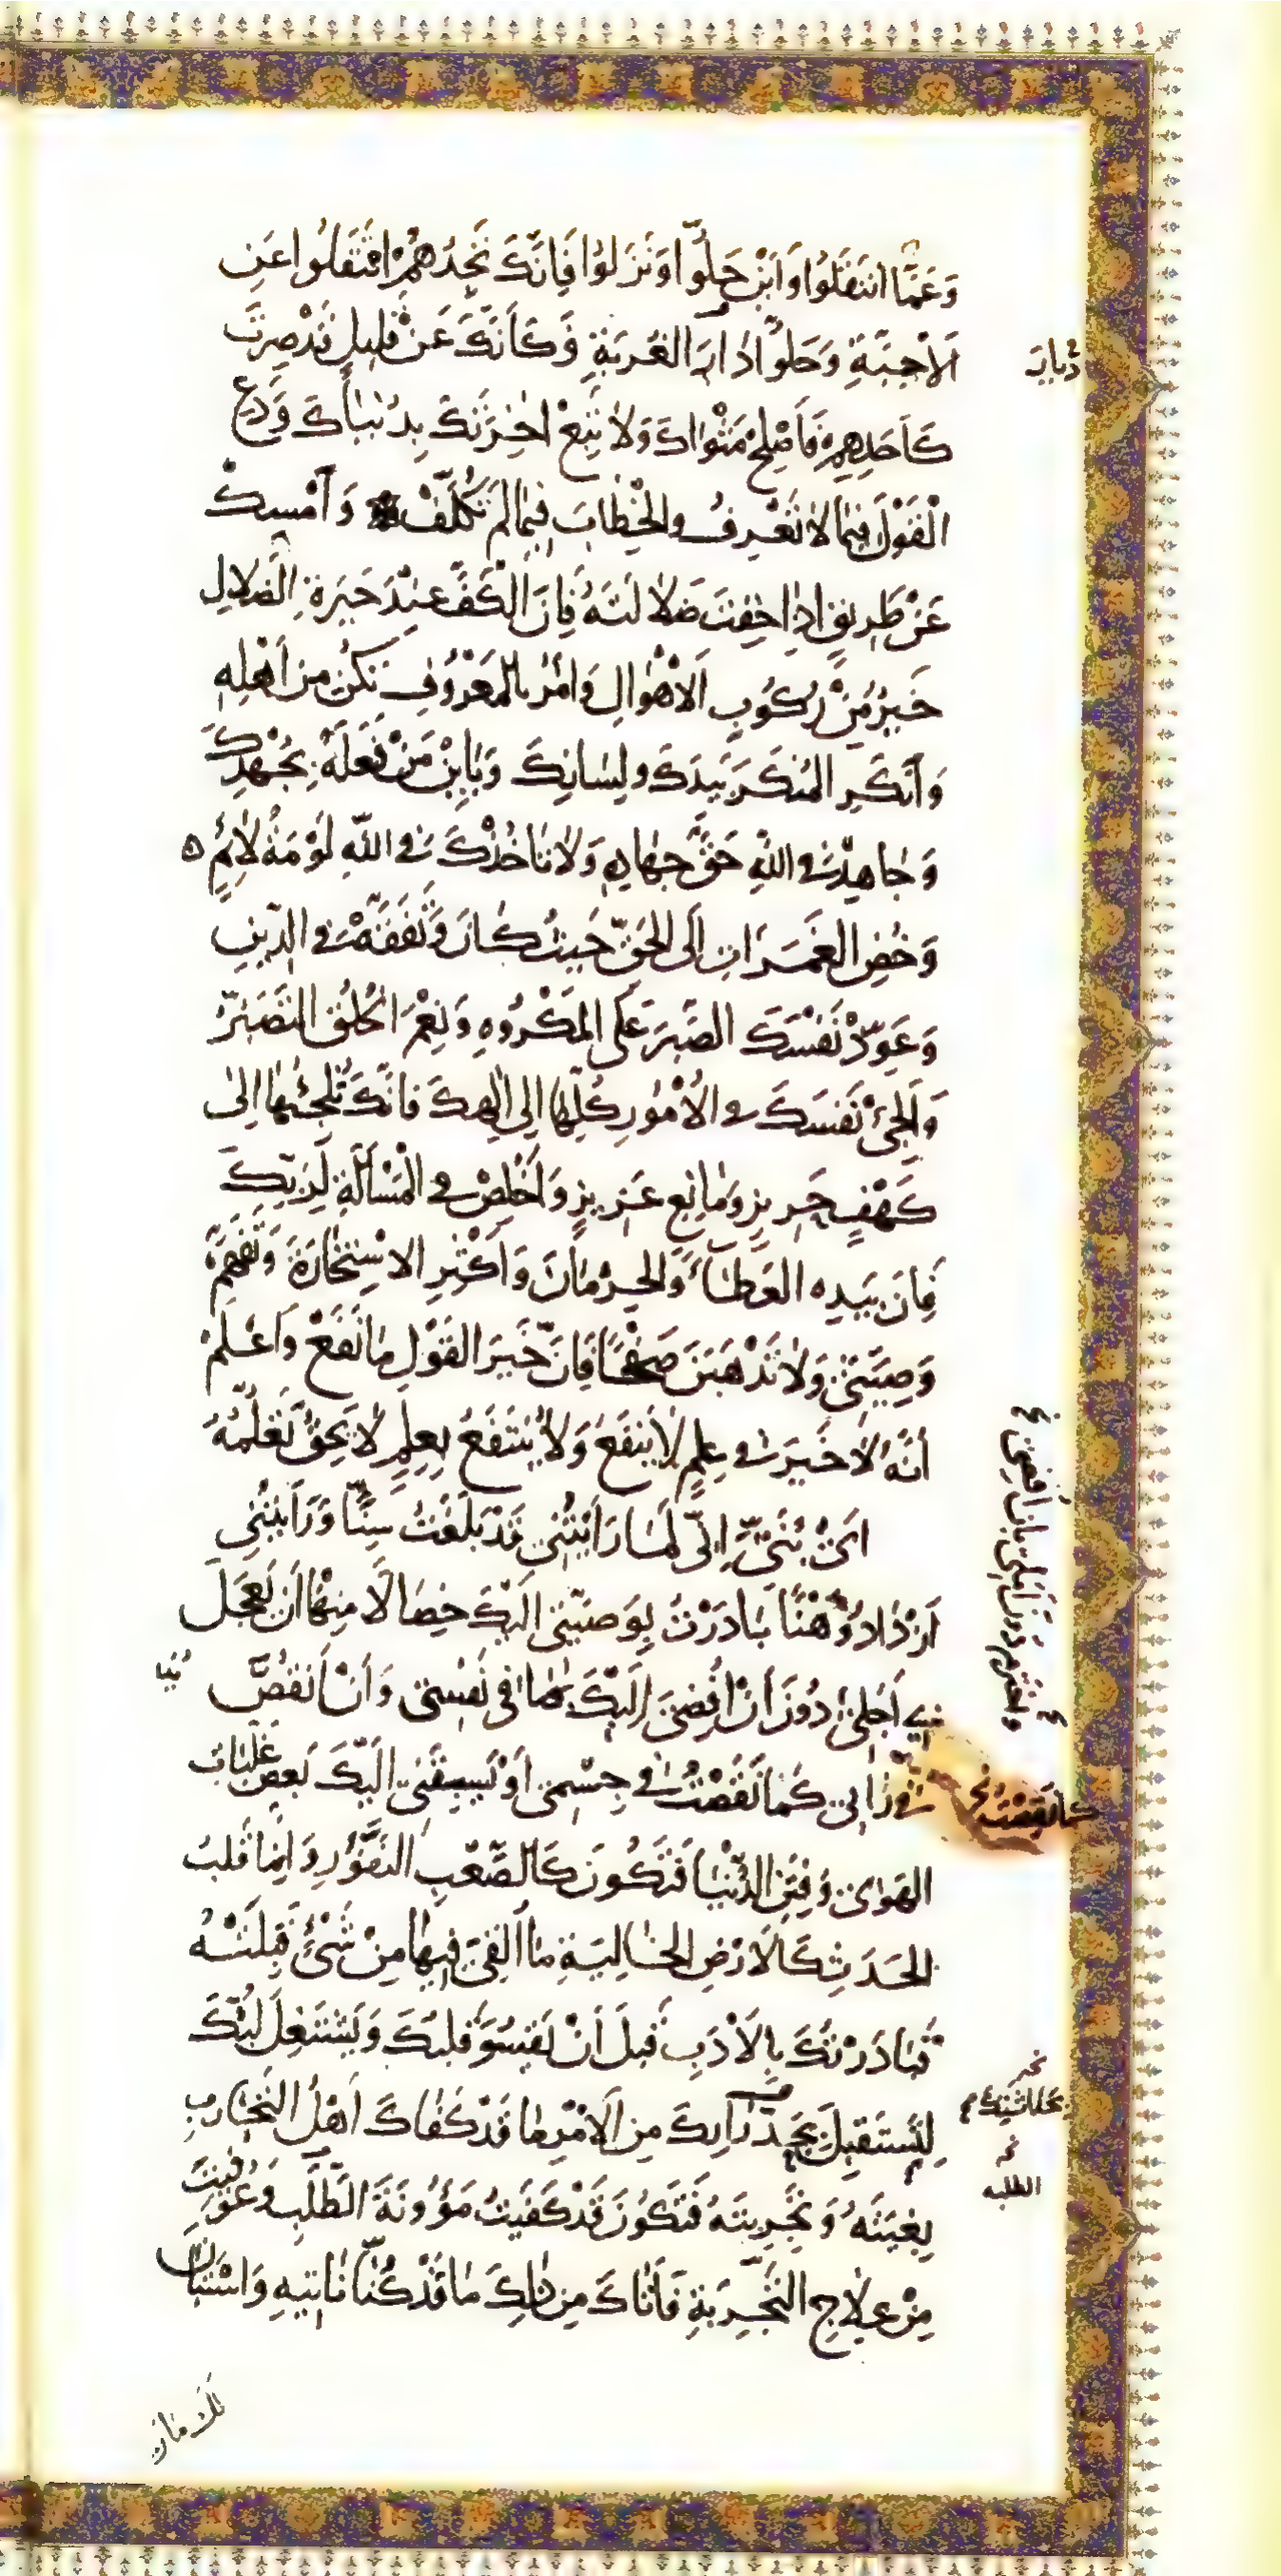 وَعَمَّا انْتَقَلُوا وَأَيْنَ حَلُّوا وَنَزَلُوا فَإِنَّكَ تَجِدُهُمْ انْتَقَلُوا عَنِ
الْأَحِبَّةِ وَحَلُّوا دَارَ الْغُرْبَةِ وَكَأَنَّكَ عَنْ قَلِيلٍ قَدْ صِرْتَ
دِيَارَ
كَأَحَدِهِمْ فَأَصْلِحْ مَثْوَاكَ وَلَا تَبِعْ آخِرَتَكَ بِدُنْيَاكَ وَدَعِ
الْقَوْلَ فِيمَا لَا تَعْرِفُ وَالْخِطَابَ فِيمَا لَمْ تُكَلَّفْ وَأَمْسِكْ
عَنْ طَرِيقٍ إِذَا خِفْتَ ضَلَالَتَهُ فَإِنَّ الْكَفَّ عِنْدَ حَيْرَةِ الضَّلَالِ
خَيْرٌ مِنْ رُكُوبِ الْأَهْوَالِ وَأْمُرْ بِالْمَعْرُوفِ تَكُنْ مِنْ أَهْلِهِ
وَأَنْكِرِ الْمُنْكَرَ بِيَدِكَ وَلِسَانِكَ وَبَايِنْ مَنْ فَعَلَهُ بِجُهْدِكَ
وَجَاهِدْ فِي اللَّهِ حَقَّ جِهَادِهِ وَلَا تَأْخُذْكَ فِي اللَّهِ لَوْمَةُ لَائِمٍ ه
وَخُضِ الْغَمَرَاتِ إِلَى الْحَقِّ حَيْثُ كَانَ وَتَفَقَّهْ فِي الدِّينِ
وَعَوِّدْ نَفْسَكَ الصَّبْرَ عَلَى الْمَكْرُوهِ وَنِعْمَ الْخُلُقُ التَّصَبُّرُ
وَأَلْجِئْ نَفْسَكَ فِي الْأُمُورِ كُلِّهَا إِلَى إِلَهِكَ فَإِنَّكَ تُلْجِئُهَا إِلَى
كَهْفٍ حَرِيزٍ وَمَانِعٍ عَزِيزٍ وَأَخْلِصْ فِي الْمَسْأَلَةِ لِرَبِّكَ
فَإِنَّ بِيَدِهِ الْعَطَاءَ وَالْحِرْمَانَ وَأَكْثِرِ الِاسْتِخَارَةَ وَتَفَهَّمْ
وَصِيَّتِي وَلَا تَذْهَبَنَّ صَفْحًا فَإِنَّ خَيْرَ الْقَوْلِ مَا نَفَعَ وَاعْلَمْ
أَنَّهُ لَا خَيْرَ فِي عِلْمٍ لَا يَنْفَعُ وَلَا يُنْتَفَعُ بِعِلْمٍ لَا يَحِقُّ تَعَلُّمُهُ
أَيْ بُنَيَّ إِنِّي لَمَّا رَأَيْتُنِي قَدْ بَلَغْتُ سِنًّا وَرَأَيْتُنِي
أَزْدَادُ وَهْنًا بَادَرْتُ بِوَصِيَّتِي إِلَيْكَ خِصَالًا مِنْهَا أَنْ يَعْجَلَ
بِي أَجَلِي دُونَ أَنْ أُفْضِيَ إِلَيْكَ بِمَا فِي نَفْسِي وَأَنْ أَنْقُصَ
فِي رَأْيِي كَمَا نَقَصْتُ فِي جِسْمِي أَوْ يَسْبِقَنِي إِلَيْكَ بَعْضُ غَلَبَاتِ
كَمَا نُقِصْتُ
الْهَوَى وَفِتَنِ الدُّنْيَا فَتَكُونَ كَالصَّعْبِ النَّفُورِ وَإِنَّمَا قَلْبُ
الْحَدَثِ كَالْأَرْضِ الْخَالِيَةِ مَا أُلْقِيَ فِيهَا مِنْ شَيْءٍ قَبِلَتْهُ
فَبَادَرْتُكَ بِالْأَدَبِ قَبْلَ أَنْ يَقْسُوَ قَلْبُكَ وَيَشْتَغِلَ لُبُّكَ
لِتَسْتَقْبِلَ بِجِدِّ رَأْيِكَ مِنَ الْأَمْرِ مَا قَدْ كَفَاكَ أَهْلُ التَّجَارِبِ
بِغْيَتَهُ وَتَجْرِبَتَهُ فَتَكُونَ قَدْ كُفِيتَ مَؤُونَةَ الطَّلَبِ وَعُوفِيتَ
الطلبه
مِنْ عِلَاجِ التَّجْرِبَةِ فَأَتَاكَ مِنْ ذَلِكَ مَا قَدْ كُنَّا نَأْتِيهِ وَاسْتَبَانَ
لَكَ مَا